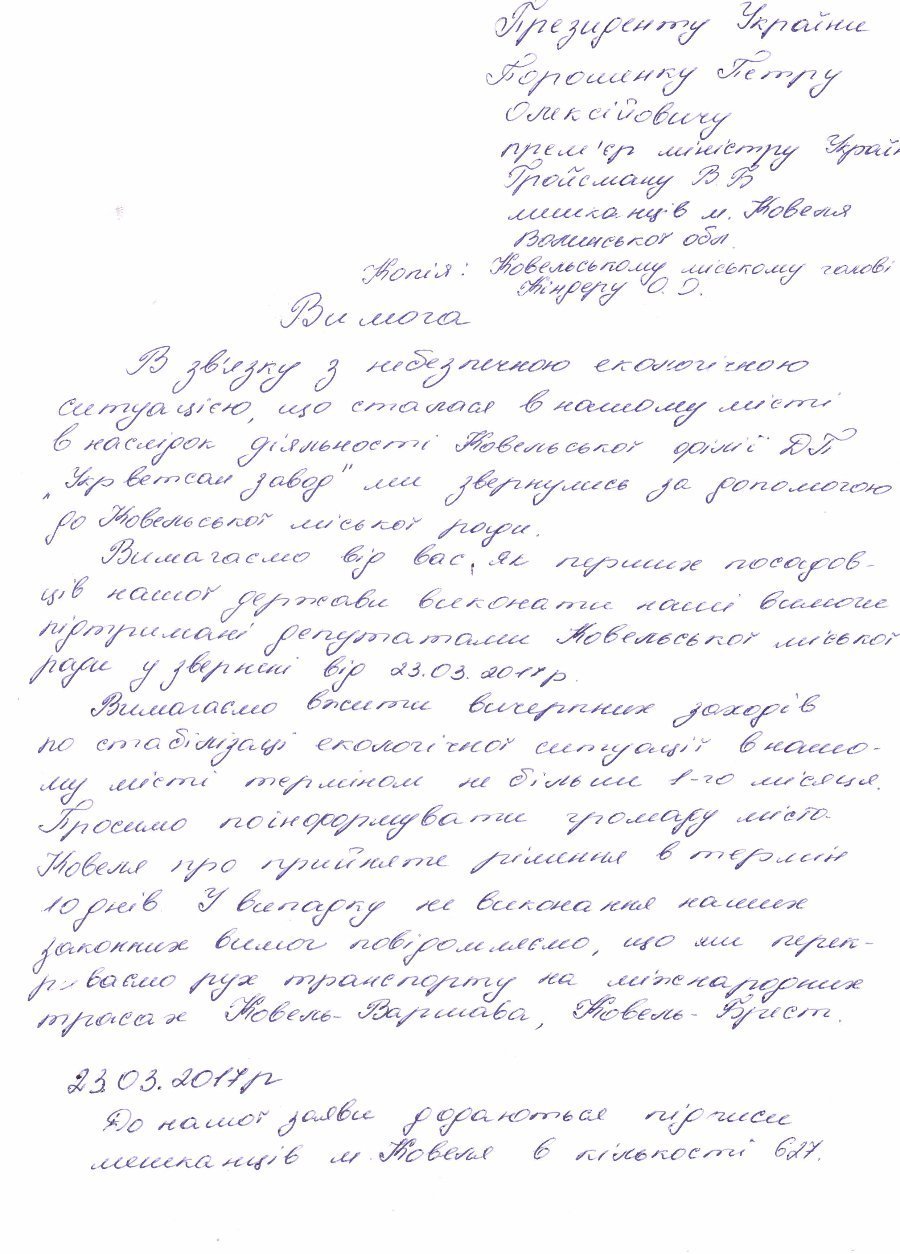 Президенту України
Порошенку Петру
Олексійовичу
прем'єр міністру Україн
Гройсману В В
мешканців м. Ковеля
Волинської обл.
Копія: Ковельському міському голові
Кіндеру О. О.
Вимога
В зв'язку з небезпечною екологічною
ситуацією, що сталася в нашому місті
в наслідок діяльності Ковельської філії ДП
„Укрветсан завод" ми звернулись за допомогою
до Ковельської міської ради.
Вимагаємо від вас, як перших посадов-
ців нашої держави виконати наші вимоги
підтримані депутатами Ковельської міської
ради у звернені від 23.03.2017р.
Вимагаємо вжити вичерпних заходів
по стабілізаці екологічної ситуації в нашо-
му місті терміном не більш 1-го місяця.
Просимо поінформувати громаду міста
Ковеля про прийняте рішення в термін
10 днів У випадку не виконання наших
законних вимог повідомляємо, що ми перек-
риваємо рух транспорту на міжнародних
трасах Ковель-Варшава, Ковель-Брест.
23.03.2017р
До нашої заяви додаються підписи
мешканців м. Ковеля в кількості 627.